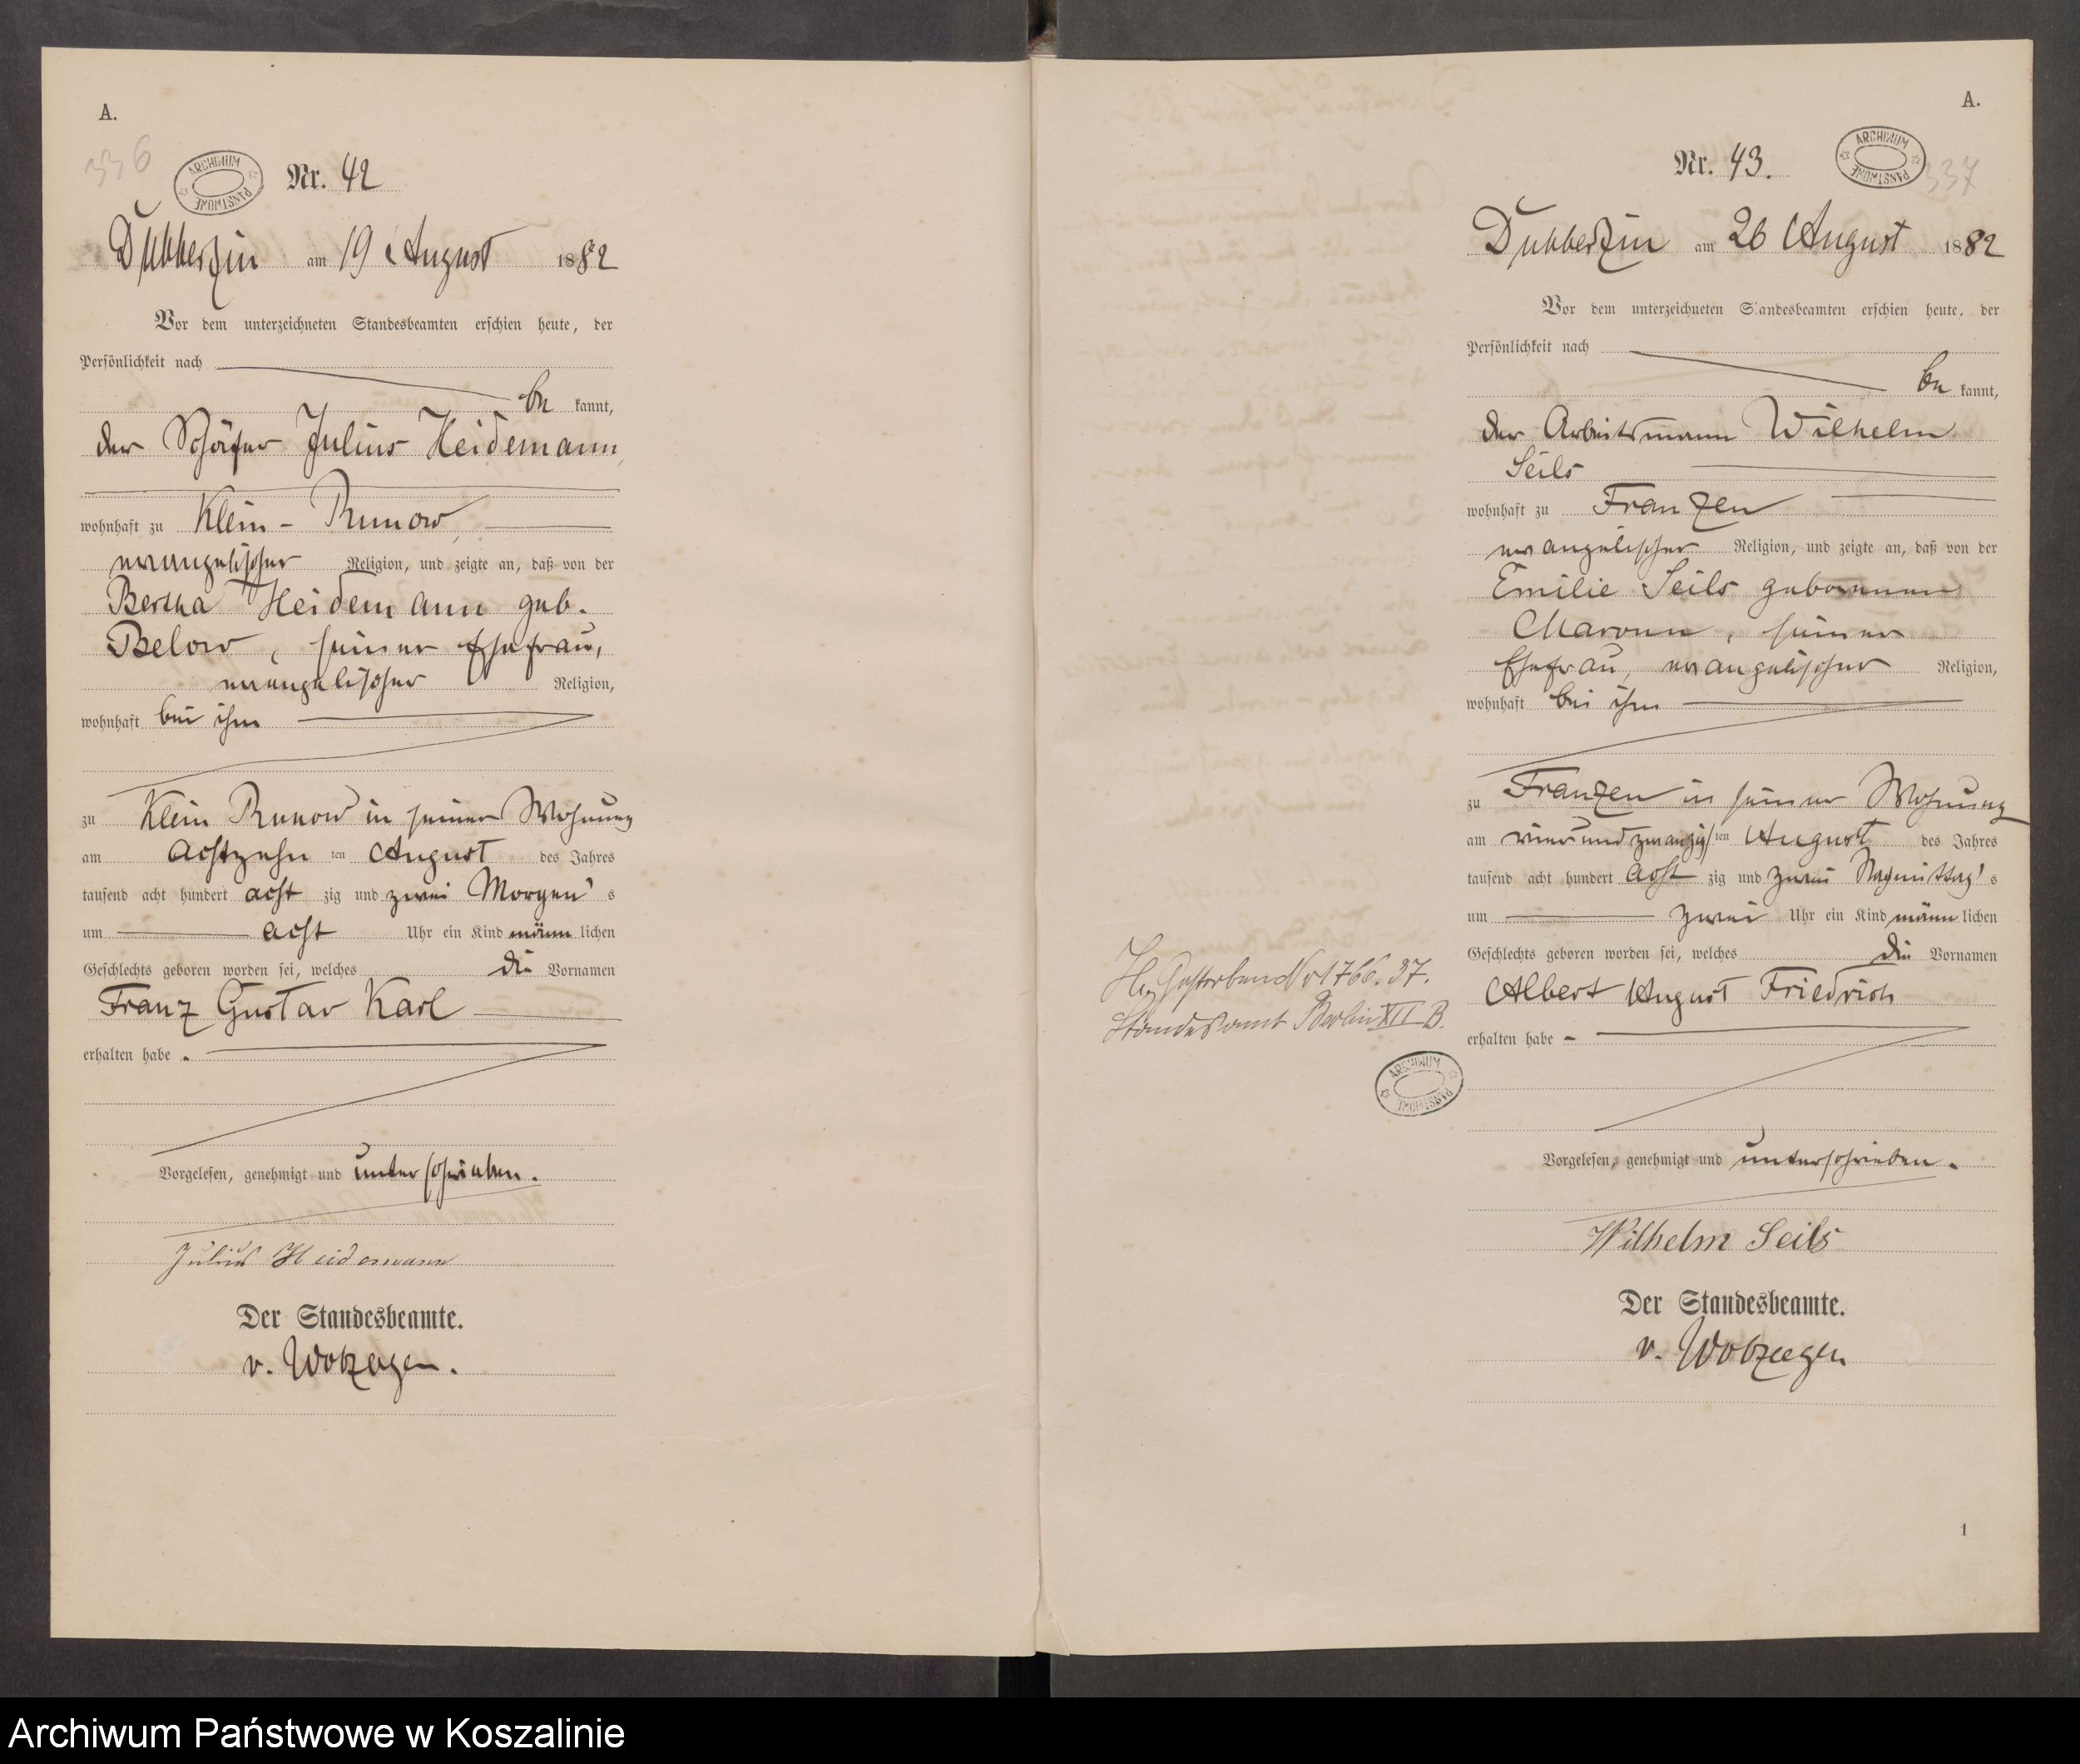 A.
336
ARCHIWUM PAŃSTWOWE
Nr. 42
Dubberzin am 19 August 1882
Vor dem unterzeichneten Standesbeamten erschien heute, der
Persönlichkeit nach
be kannt,
der Schäfer Julius Heidemann,
wohnhaft zu Klein-Runow,
evangelischer Religion, und zeigte an, daß von der
Bertha Heidemann geb.
Below, seiner Ehefrau,
evangelischer Religion,
wohnhaft bei ihm
zu Klein Runow in seiner Wohnung
am achtzehn ten August des Jahres
tausend acht hundert acht zig und zwei Morgen's
um acht Uhr ein Kind männ lichen
Geschlechts geboren worden sei, welches die Vornamen
Franz Gustav Karl
erhalten habe.
Vorgelesen, genehmigt und unterschrieben.
Julius Heidemann
Der Standesbeamte.
v. Wobzegen.
A.
Nr. 43.
ARCHIWUM PAŃSTWOWE
337
Dubberzin am 26 August 1882
Vor dem unterzeichneten Standesbeamten erschien heute, der
Persönlichkeit nach
be kannt,
der Arbeitsmann Wilhelm
Seils
wohnhaft zu Franzen
evangelischer Religion, und zeigte an, daß von der
Emilie Seils geborenen
, seiner
Ehefrau, evangelischer Religion,
wohnhaft bei ihm
zu Franzen in seiner Wohnung
am vierundzwanzigsten August des Jahres
tausend acht hundert acht zig und zwei Nachmittag's
um zwei Uhr ein Kind männ lichen
Geschlechts geboren worden sei, welches die Vornamen
Albert August Friedrich
erhalten habe
Vorgelesen, genehmigt und unterschrieben.
Wilhelm Seils
Der Standesbeamte.
v. Wobzegen
Gestorben Nr 1766.37.
Standesamt Berlin XII B.
ARCHIWUM PAŃSTWOWE
1
Archiwum Państwowe w Koszalinie